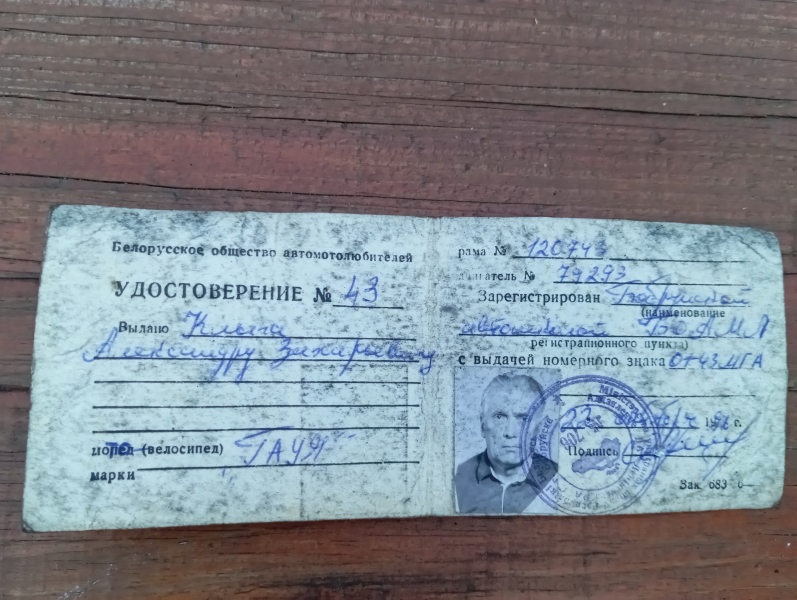 Белорусское общество автомотолюбителей
УДОСТОВЕРЕНИЕ № 43
Выдано
Александру Захаровичу
мопед (велосипед) "ГАУЯ"
марки
рама № 120743
двигатель № 79293
Зарегистрирован Бобруйской
(наименование
автошколой БОАМЛ
регистрационного пункта)
с выдачей номерного знака 0143МГА
23 19 г.
Подпись
Зак 683